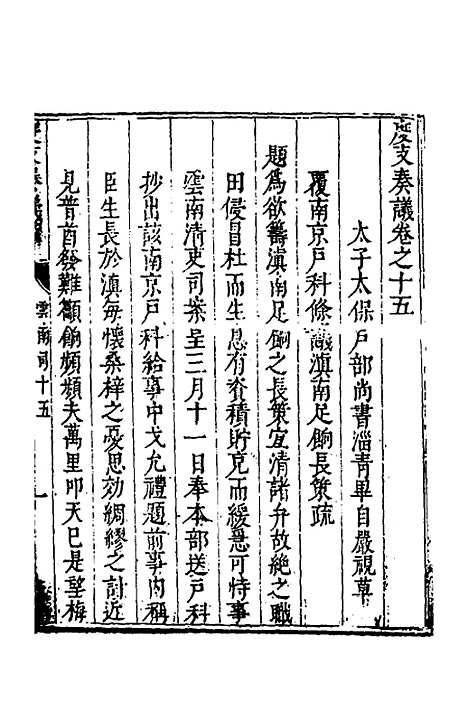 度支奏議卷之十五
太子太保戶部尚書淄青畢自嚴視草
覆南京戶科條議滇南足餉長策疏
題為欲籌滇南足餉之長策宜清諸弁故絶之職
田侵冒杜而生息有資積貯克而緩急可恃事
雲南清吏司案呈三月十一日奉本部送戶科
抄出該南京戶科給事中戈允禮題前事內稱
臣生長於滇每懷桑梓之憂思効綢繆之計近
見普酋發難籲餉頻頻夫萬里叩天已是望梅
雲南司十五